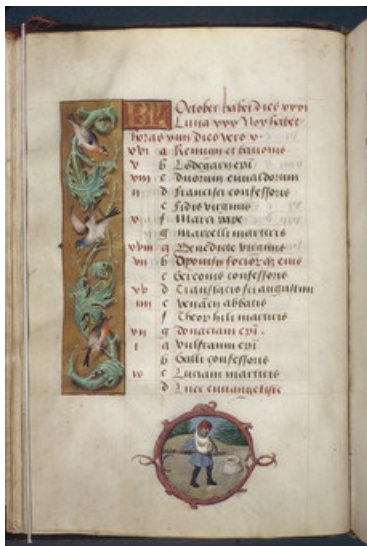 KL October habet dies xxxi
Luna xxx Nox habet
horas xiiii dies vero x.
xvi a Remigii et bavonis
v b Leodegarii epi
xiii c duorum ewaldorum
ii d francisci confessoris
e fidis virginis
x f Marci pape
g marcelli martiris
xviii a Benedicte virginis
vii b Dyonisii sociorumque eius
c Gereonis confessoris
xv d Translacio sci augustini
iiii e venancii abbatis
f Theophili martiris
xii g donaciani epi.
i a vulfranni epi
b Galli confessoris
c Luciani martiris
d Luce euuangeliste